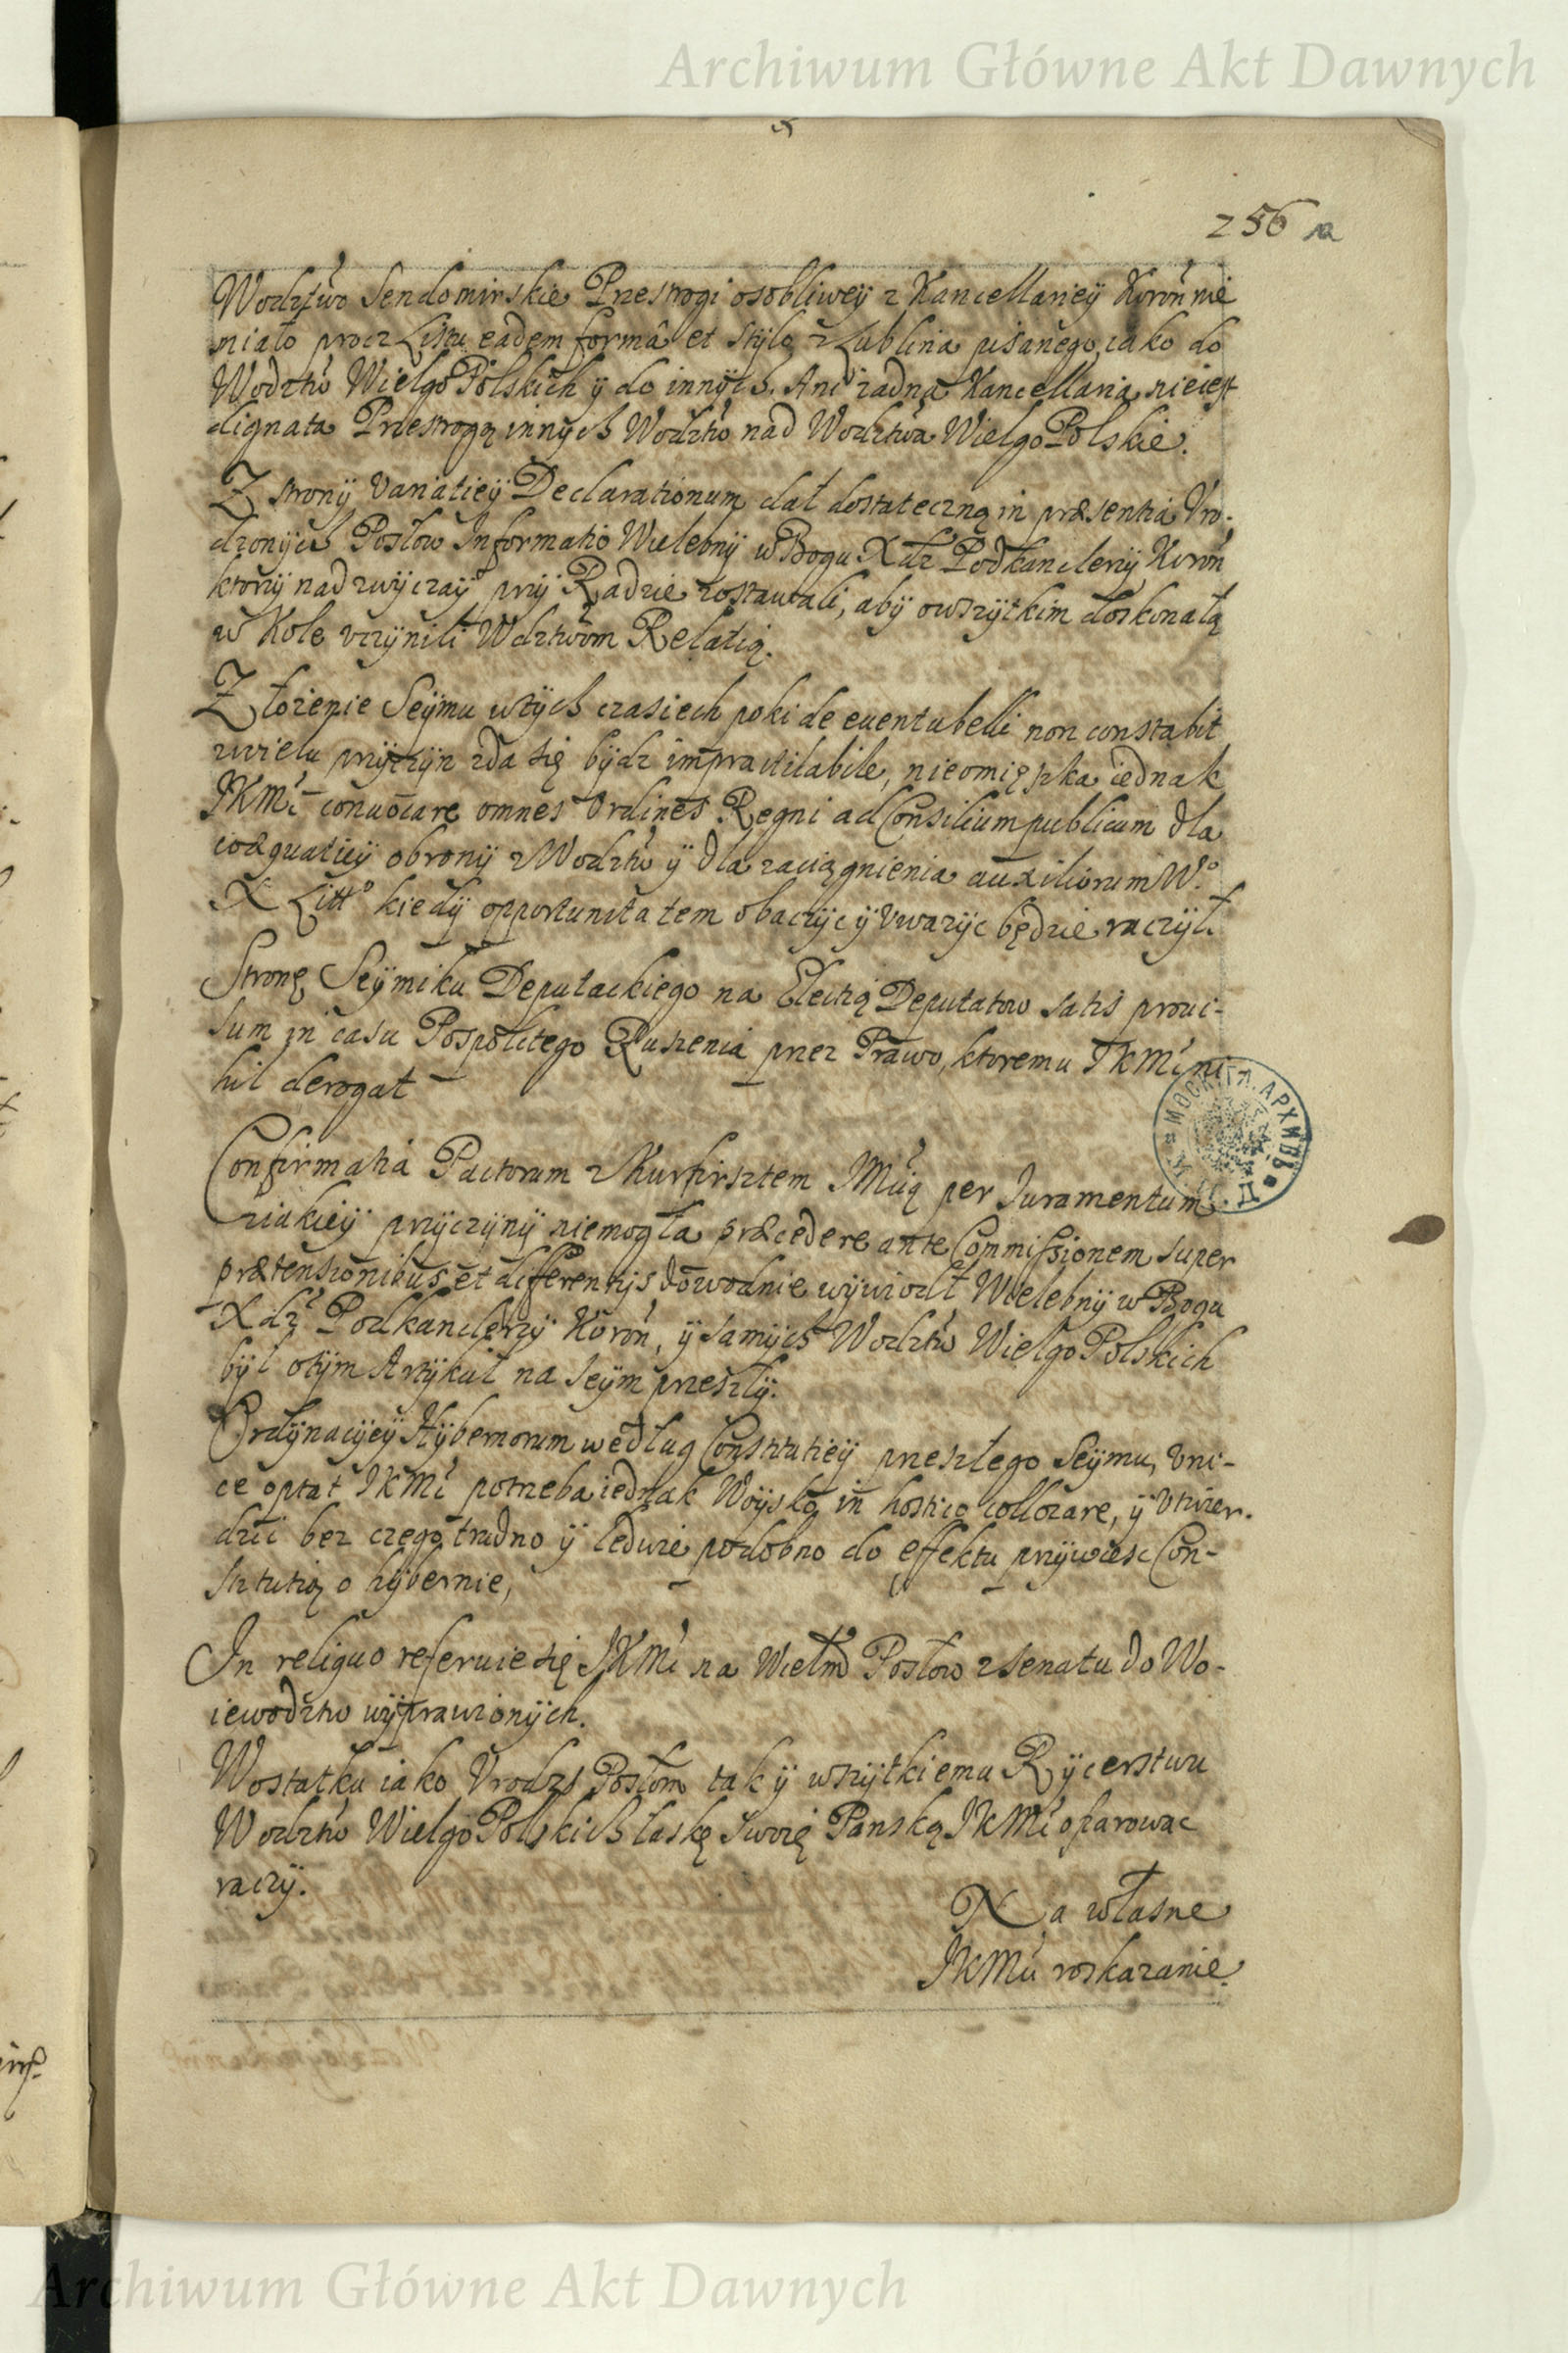 Archiwum Główne Akt Dawnych
256 a
Wodztwo Sendomirskie Przestrogi osobliweÿ z Kancellarieÿ Koroń nie
miało procz Listu eadem formâ et stÿlo z Lublina pisanego, iako do
Wodztw WielgoPolskich ÿ do innÿch. Ani żadna Kancellaria nieiest
dignata Przestrogą innÿch Wodztw nad Wodztwa WielgoPolskie.
Z stronÿ Variatieÿ Declarationum dał dostateczną in præsentia Vro-
dzonÿch Posłow Informatio Wielebnÿ w Bogu Xdz Podkanclerzÿ Koroń
ktorÿ nadzwÿczaÿ przÿ Radzie zostawali, abÿ owszÿtkim doskonałą
w Kole vczÿnili Wdztwom Relatią.
Złożenie Seÿmu wtÿch czasiech poki de euentu belli non constabit
zwielu przÿczÿn zda się bÿdz impracticabile, nieomięszka iednak
JKMć conuocare omnes Ordines Regni ad Consilium publicum dla
coæquatieÿ obronÿ z Wodztw ÿ dla zaciągnienia auxiliorum W.º
X Littº kiedÿ opportunitatem obaczÿc ÿ vwazÿc będzie raczÿł.
Stronę Seÿmiku Deputackiego na Electią Deputatow satis proui-
sum in casu Pospolitego Ruszenia przez Prawo, ktoremu JKMć ni-
hil derogat
Confirmatia Pactorum z Kurfirsztem JMcią per Iuramentum
ziakieÿ przÿczÿnÿ niemogła præcedere ante Commissionem super
prætensionibus et differentijs dowodnie wÿwiodł Wielebnÿ w Bogu
Xdz Podkanclerzÿ Koroń, ÿ samÿch Wodztw WielgoPolskich
bÿł otÿm Artÿkuł na Seÿm przeszłÿ.
Ordÿnacÿeÿ Hÿbernorum według Constitutieÿ przeszłego Seÿmu, vni-
ce optat JKMć potrzeba iednak Woÿsko in hostico collocare, ÿ vtwier-
dzic bez czego trudno ÿ ledwie podobno do effektu przÿwiesc Con-
stitutią o hÿbernie,
In reliquo referuie się JKMć na Wielm Posłow z Senatu do Wo-
iewodztw wÿprawionÿch.
Wostatku iako Vrodz Posłom tak ÿ wszÿtkiemu Rÿcerstwu
Wodztw WielgoPolskich łaskę swoię Panską JKMć ofiarowac
raczÿ.
Na własne
JKMći roskazanie.
МОСК. ГЛ. АРХИВЪ
Archiwum Główne Akt Dawnych